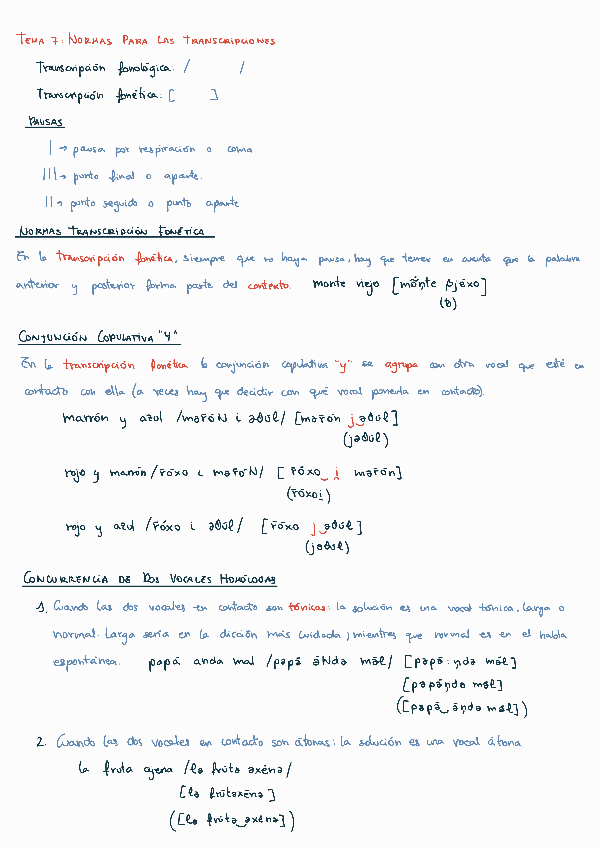 TEMA 7: NORMAS PARA LAS TRANSCRIPCIONES
Transcripción fonológica: /       /
Transcripción fonética: [       ]
PAUSAS
| → pausa por respiración o coma
||| → punto final o aparte.
|| → punto seguido o punto aparte
NORMAS TRANSCRIPCIÓN FONÉTICA
En la transcripción fonética, siempre que no haya pausa, hay que tener en cuenta que la palabra
anterior y posterior forma parte del contexto. monte viejo
(b)
CONJUNCIÓN COPULATIVA "Y"
En la transcripción fonética la conjunción copulativa "y" se agrupa con otra vocal que esté en
contacto con ella (a veces hay que decidir con qué vocal ponerla en contacto).
marrón y azul
rojo y marrón
rojo y azul
CONCURRENCIA DE DOS VOCALES HOMÓLOGAS
1. Cuando las dos vocales en contacto son tónicas: la solución es una vocal tónica, larga o
normal. Larga sería en la dicción más cuidada, mientras que normal es en el habla
espontánea. papá anda mal
2. Cuando las dos vocales en contacto son átonas: la solución es una vocal átona
la fruta ajena